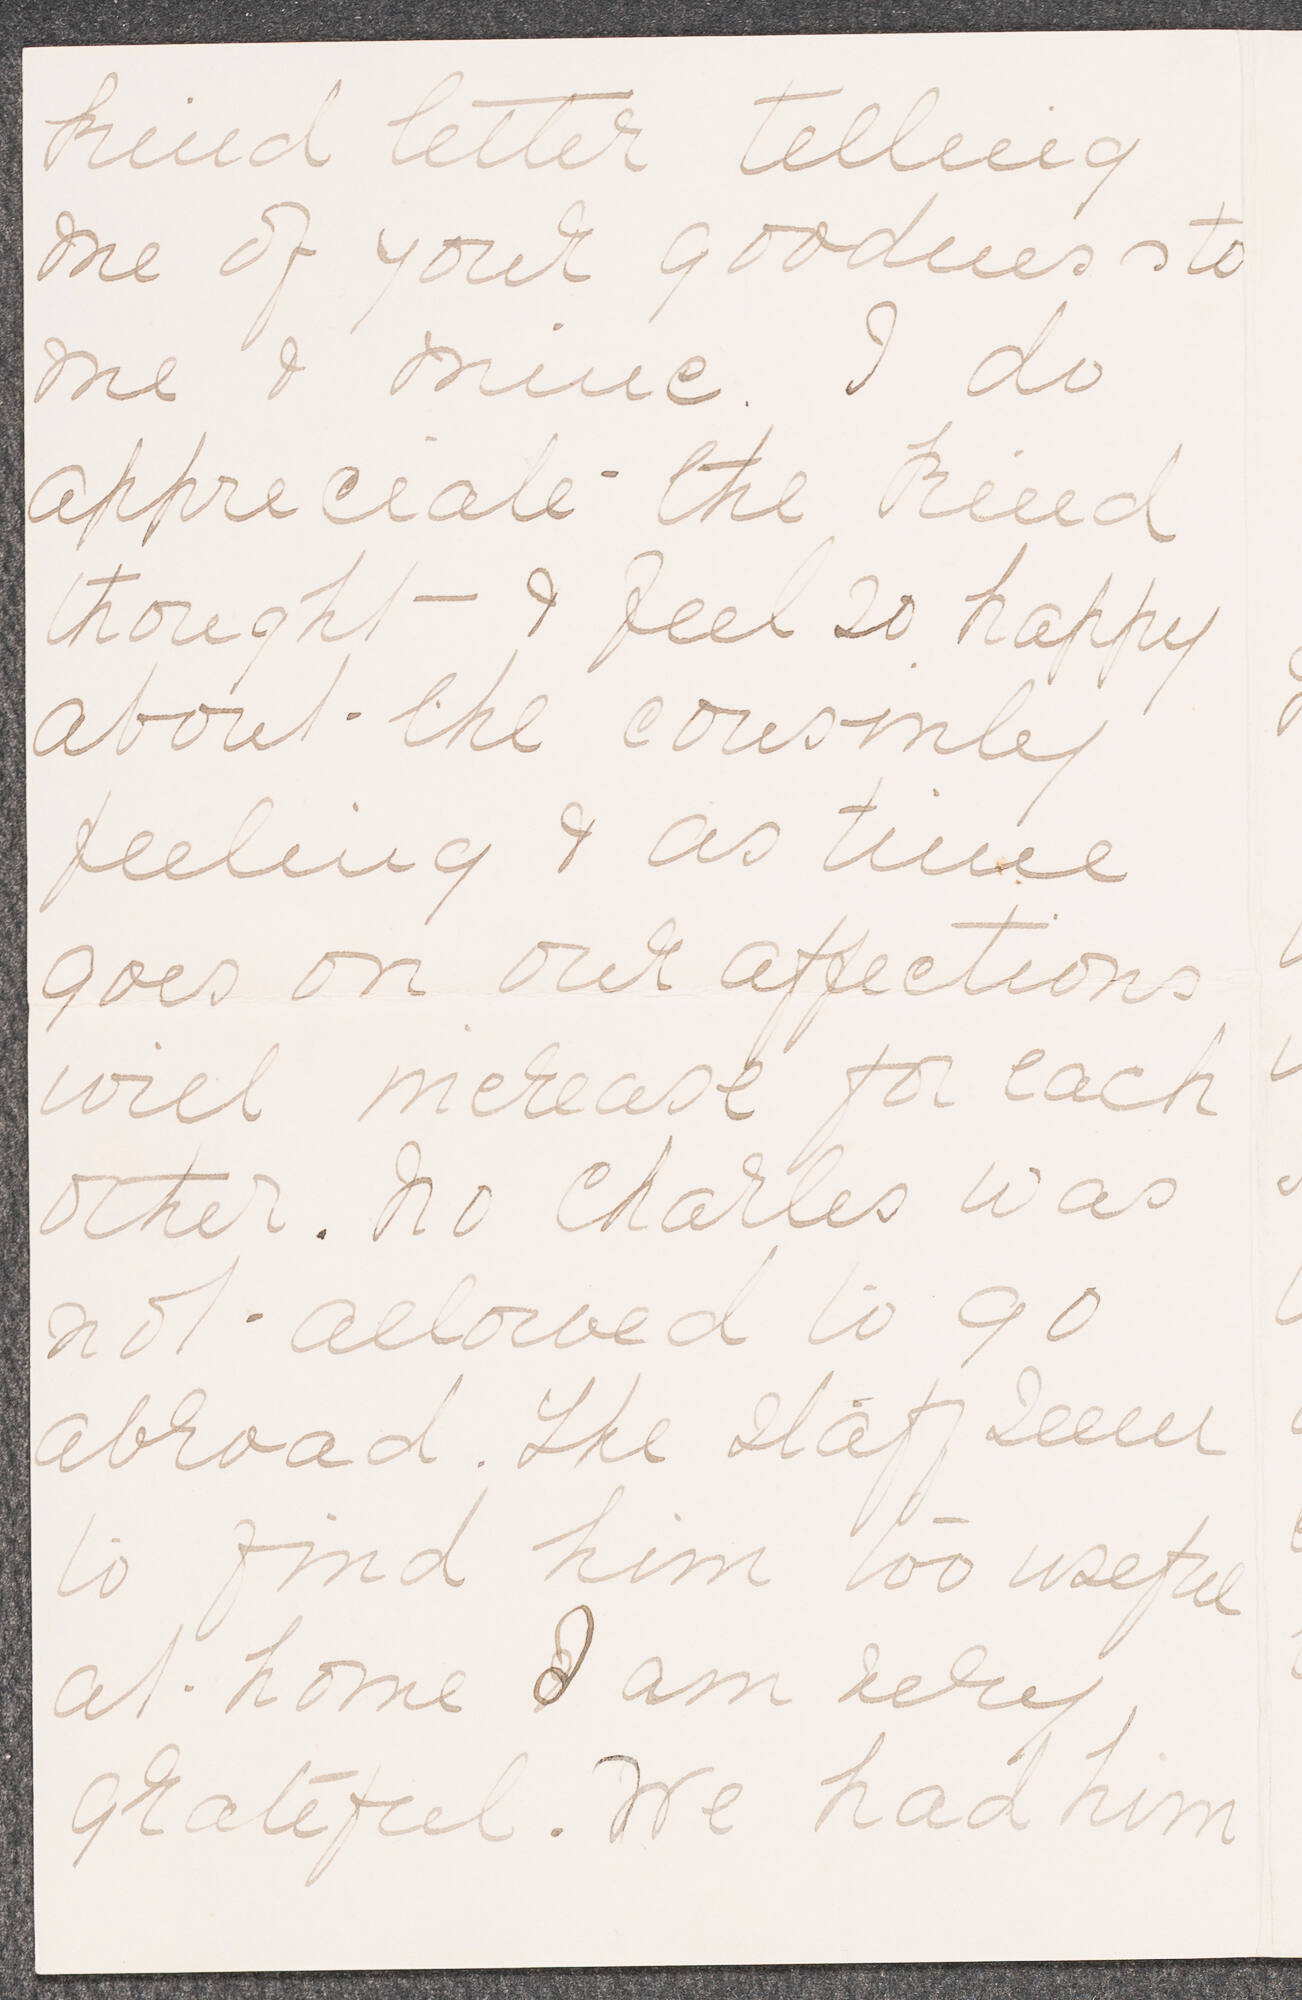 kind letter telling
me of your goodness to
me & mine. I do
appreciate the kind
thought - & feel so happy
about the cousinly
feeling & as time
goes on our affections
will increase for each
other. No Charles was
not allowed to go
abroad. The staff seem
to find him too useful
at home I am very
grateful. We had him